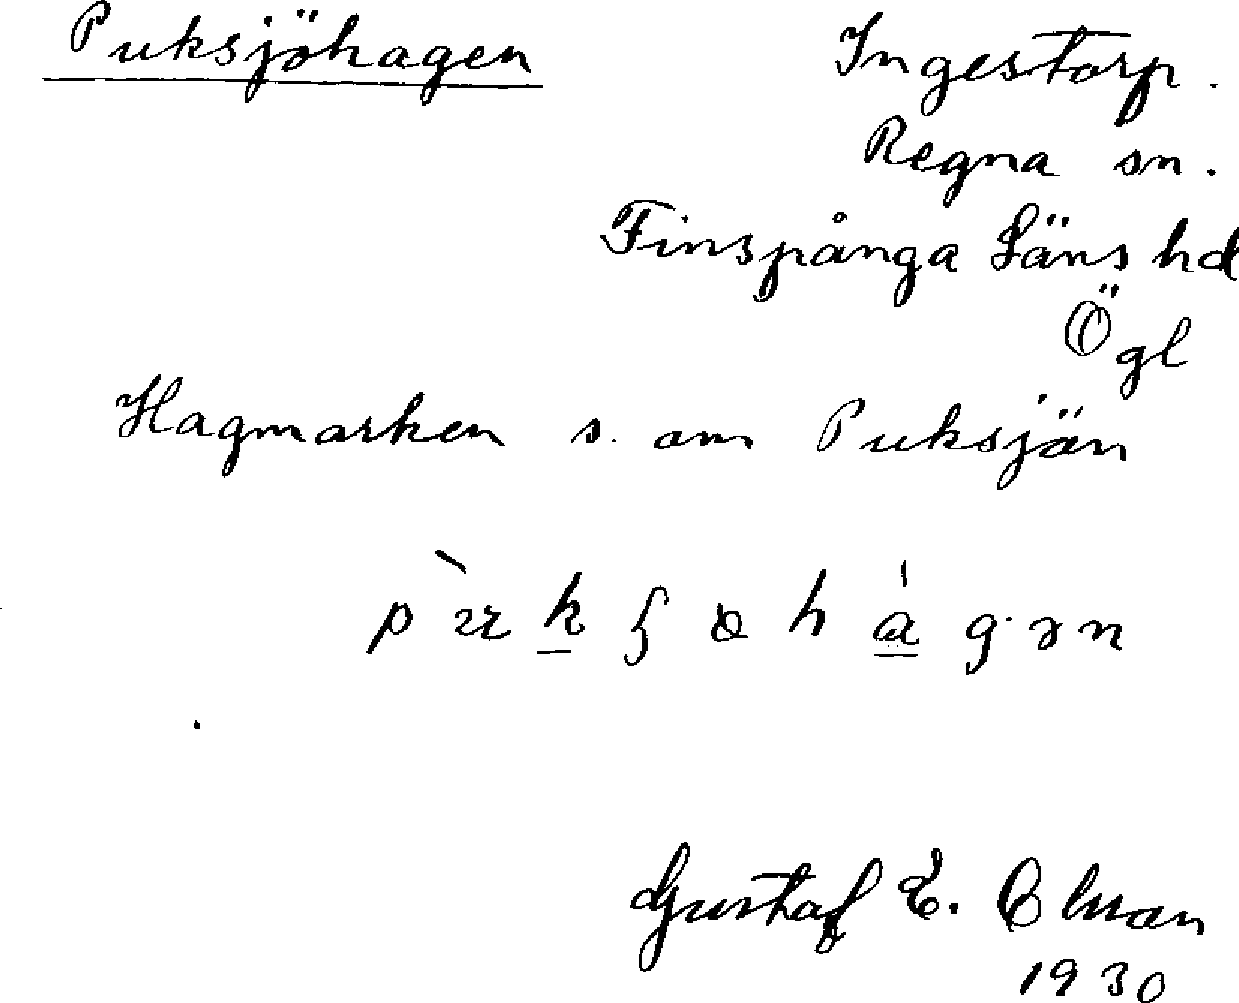 Puksjöhagen Ingestorp.
Regna sn.
Finspånga Läns hd
Ögl
Hagmarken s. om Puksjön
Gustaf E.
1930